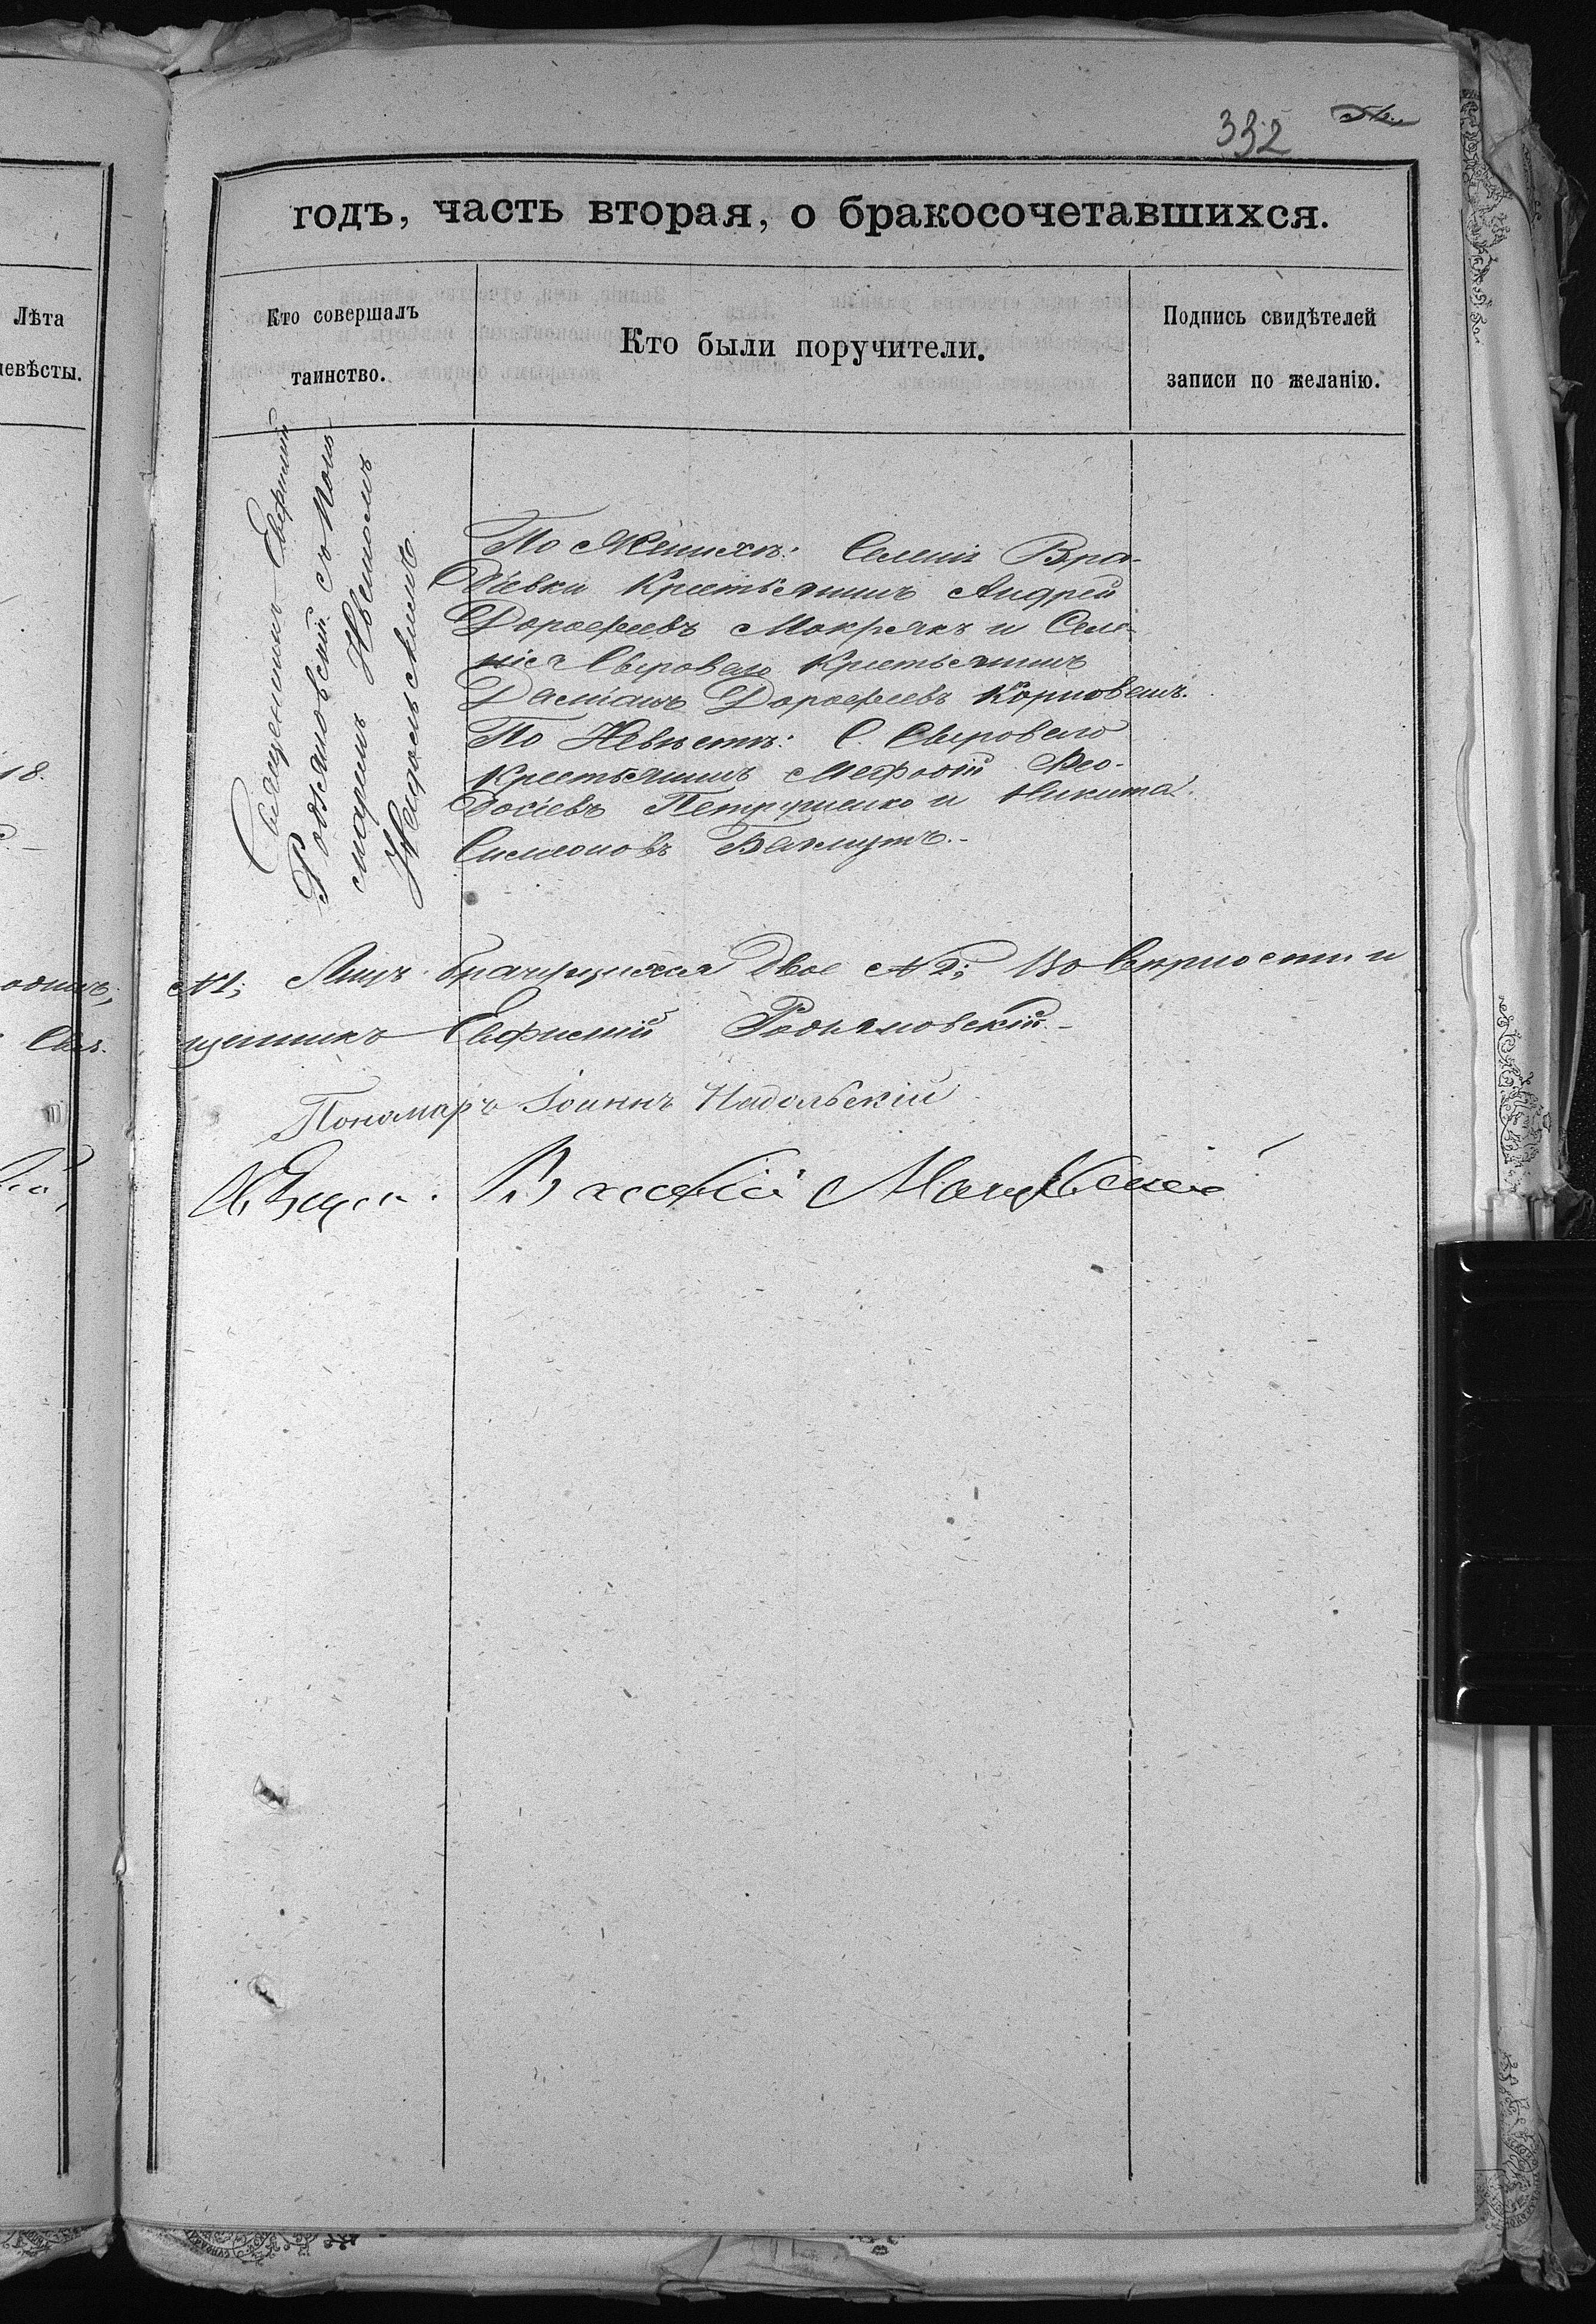 332
годъ, часть вторая, о бракосочетавшихся.
Лѣта
невѣсты.
Кто совершалъ
таинство.
Кто были поручители.
Подпись свидѣтелей
записи по желанію.
18.
Священникъ Евфимій
Родкановскій съ Поно
маремъ
Надольскимъ
По Женихѣ: Селенія Вра-
діевки Крестьянинъ Андрей
Дорофеевъ Мокрякъ и Селе-
нія Сырового Крестьянинъ
Даміанъ Дорофеевъ
По Невѣстѣ: С. Сырового
Крестьянинъ Мефодій Ѳео-
досіевъ Петрушенко и Никита
Симеоновъ Бахмутъ.-
однихъ,
№ 1; Лицъ брачущихся двое № 2; Во вѣрности и
Свя-
щенникъ Евфимій
Пономаръ Іоаннъ Надольскій